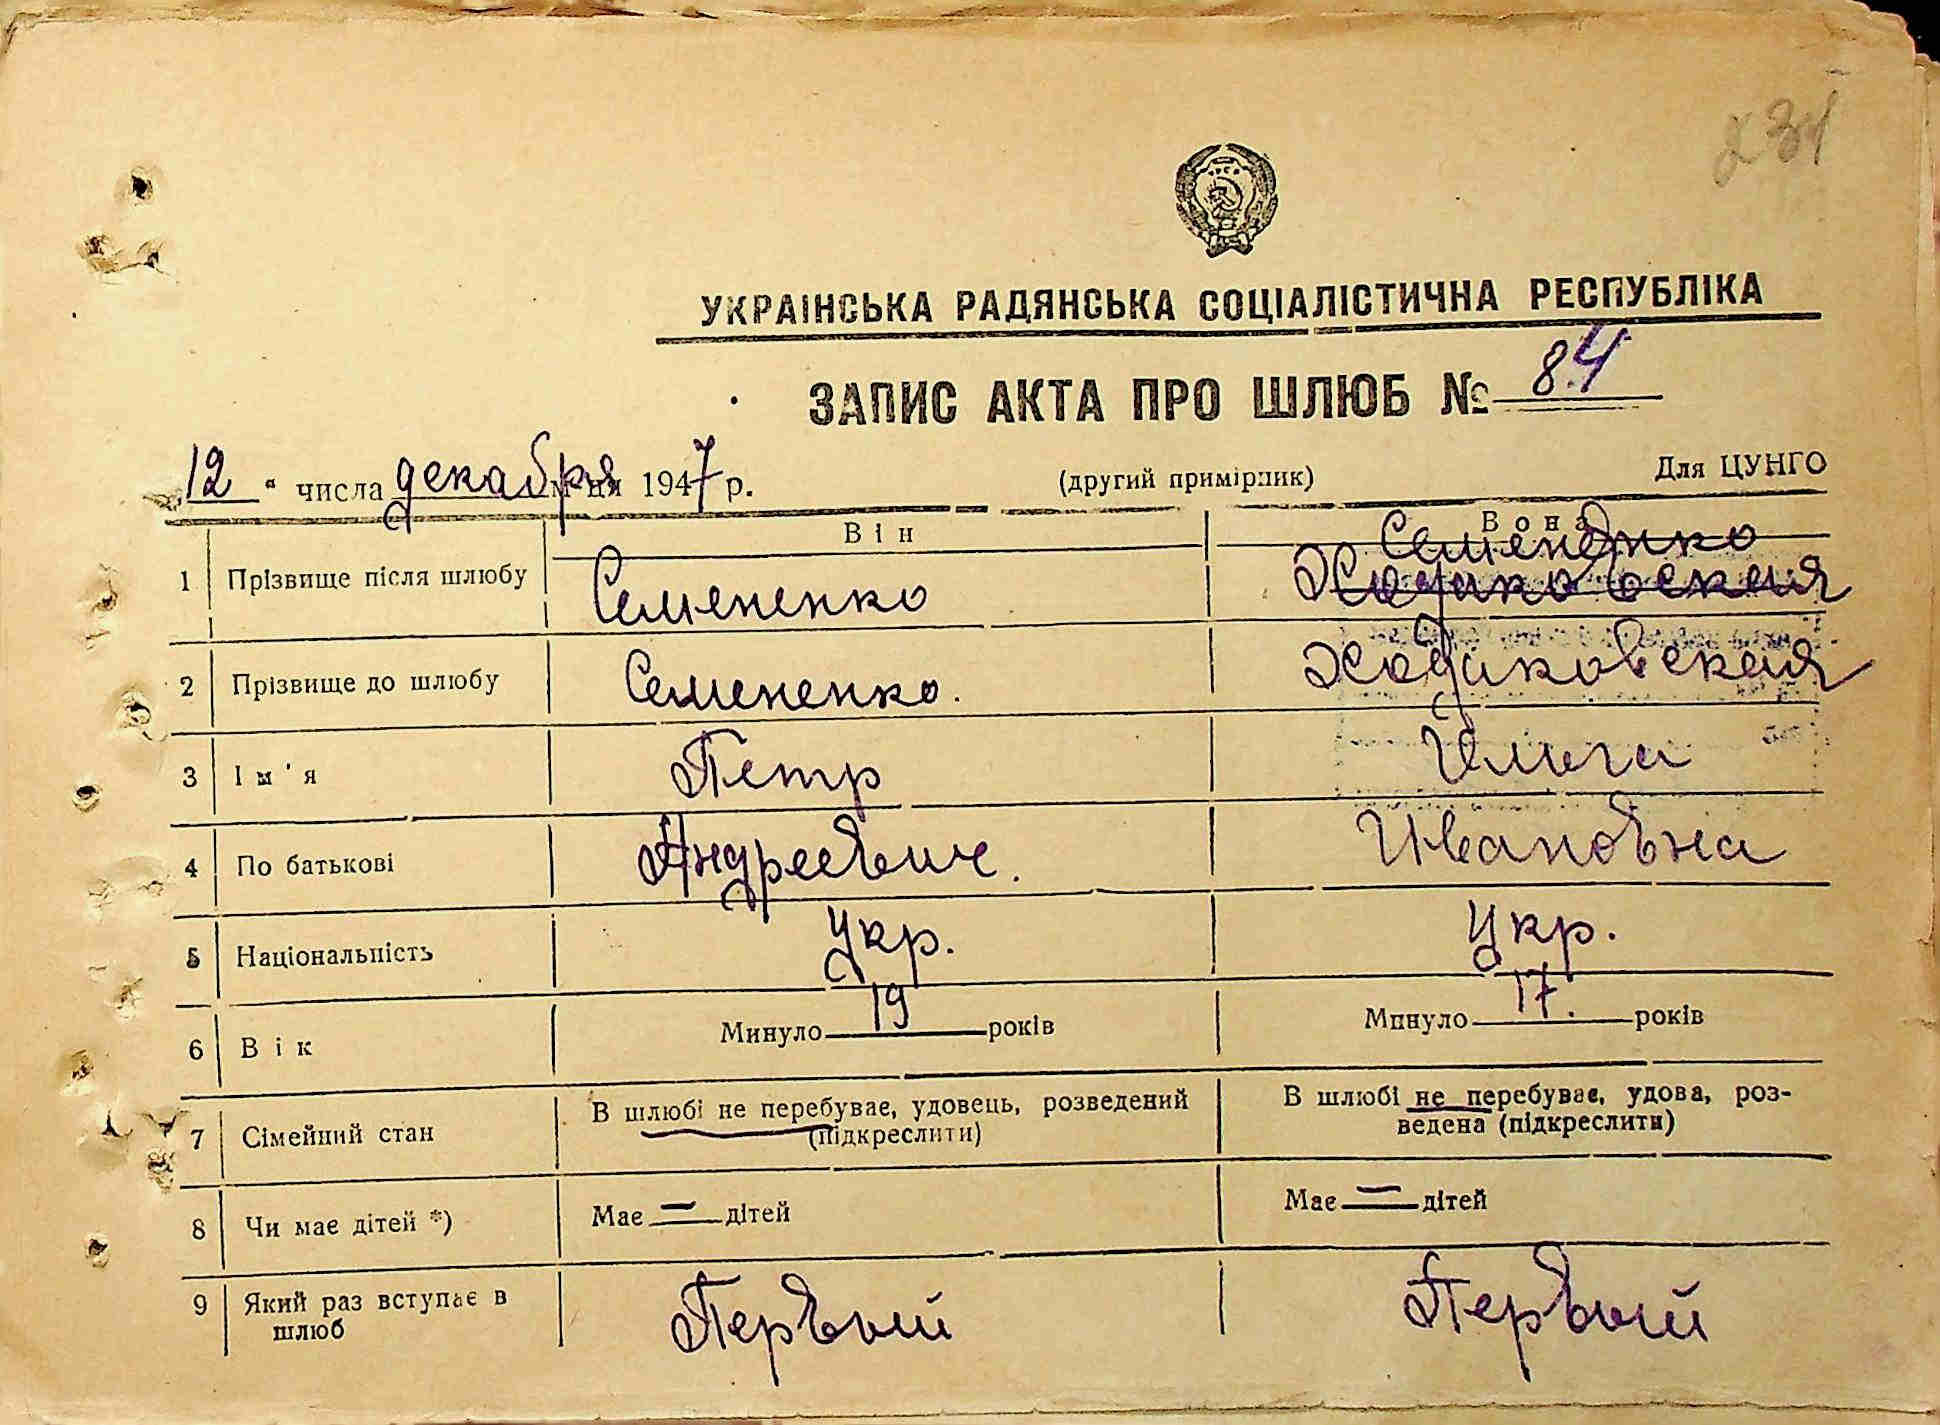 231
УКРАЇНСЬКА РАДЯНСЬКА СОЦІАЛІСТИЧНА РЕСПУБЛІКА
ЗАПИС АКТА ПРО ШЛЮБ № 84
12 " числа декабря м-ця 1947 р. (другий примірник) Для ЦУНГО
Він Вона
Семененко
1 Прізвище після шлюбу Семененко Ходаковская
2 Прізвище до шлюбу Семененко. Ходаковская
3 Ім'я Петр Ольга
4 По батькові Андреевич. Ивановна
5 Національність Укр. Укр.
6 Вік Минуло 19 років Минуло 17. років
7 Сімейний стан В шлюбі не перебуває, удовець, розведений (підкреслити) В шлюбі не перебуває, удова, роз-
ведена (підкреслити)
8 Чи має дітей *) Має — дітей Має — дітей
9 Який раз вступає в шлюб Первый Первый